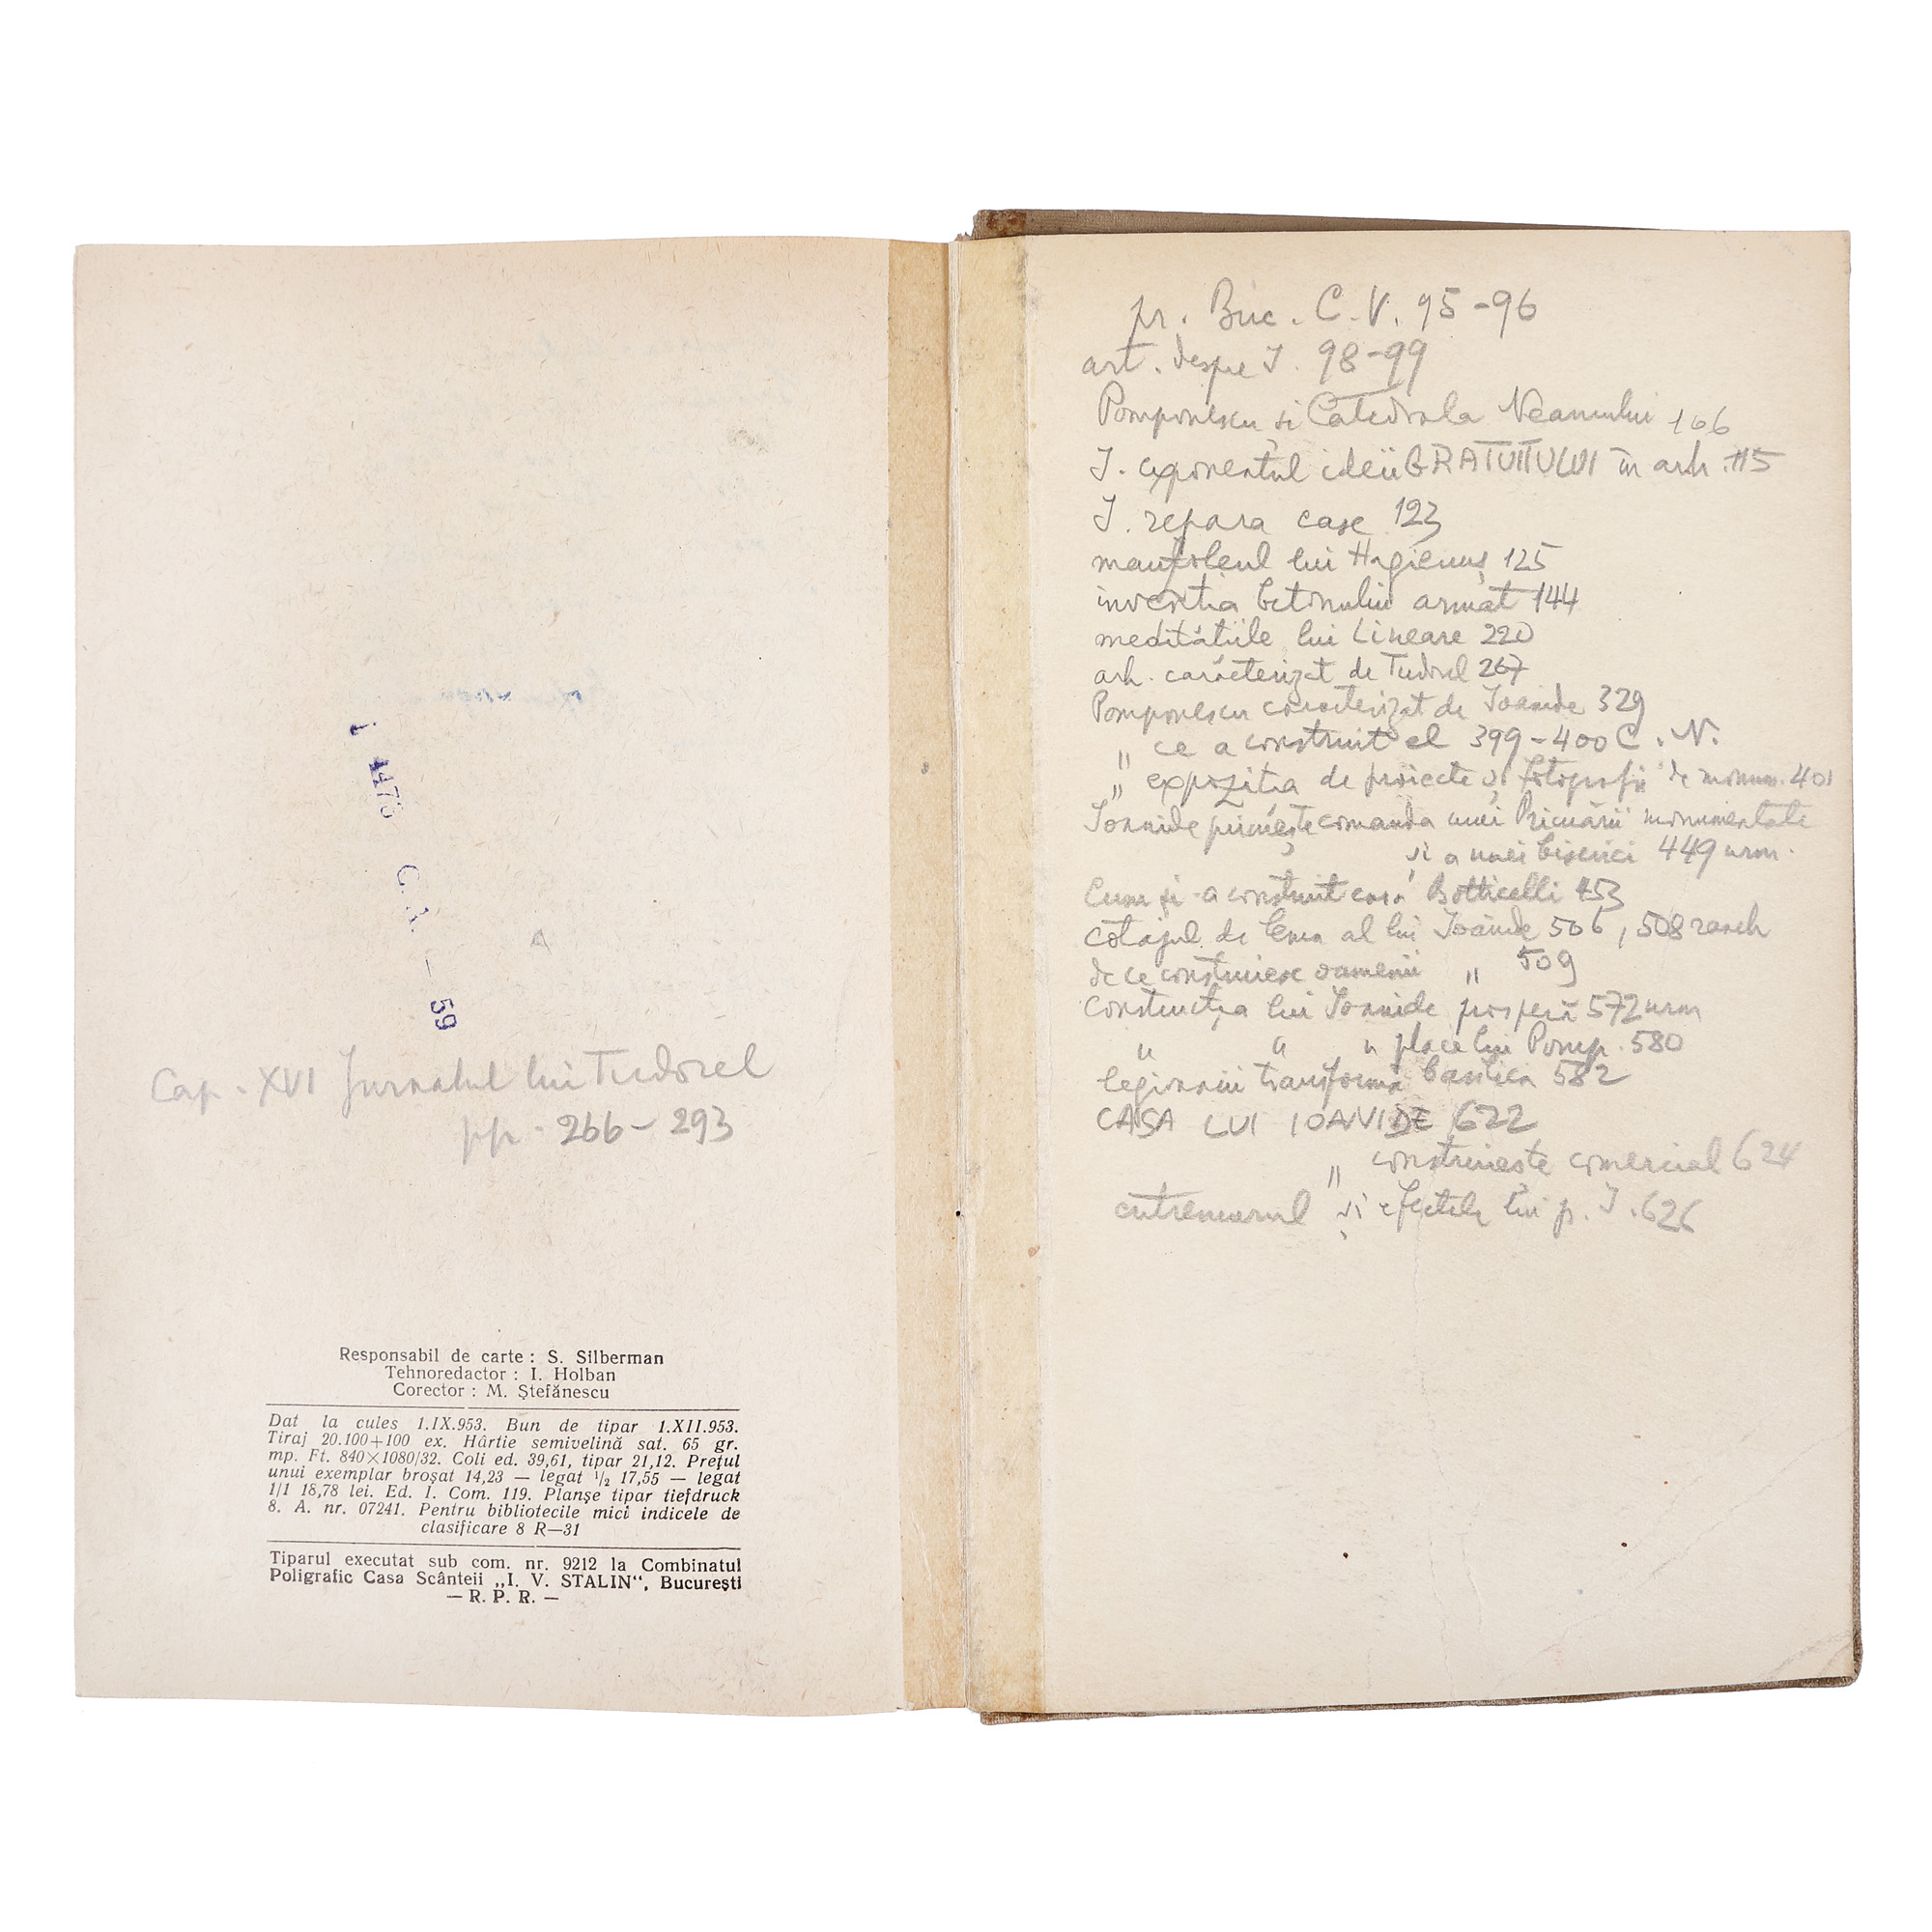 1 4475 C. A. — 59
Cap. XVI Jurnalul lui Tudorel
pp. 266 - 293
Responsabil de carte : S. Silberman
Tehnoredactor : I. Holban
Corector : M. Ştefănescu
Dat la cules 1.IX.953. Bun de tipar 1.XII.953.
Tiraj 20.100+100 ex. Hârtie semivelină sat. 65 gr.
mp. Ft. 840×1080/32. Coli ed. 39,61, tipar 21,12. Preţul
unui exemplar broşat 14,23 — legat 1/2 17,55 — legat
1/1 18,78 lei. Ed. I. Com. 119. Planşe tipar tiefdruck
8. A. nr. 07241. Pentru bibliotecile mici indicele de
clasificare 8 R—31
Tiparul executat sub com. nr. 9212 la Combinatul
Poligrafic Casa Scânteii „I. V. STALIN“, Bucureşti
— R. P. R. —
pr. Buc. C. V. 95-96
art. despre I. 98-99
Pomponescu și Catedrala Neamului 106
I. exponentul ideii GRATUITULUI în arh. 115
I. repara case 123
mausoleul lui Hagienuș 125
invenția betonului armat 144
meditațiile lui Lineare 220
arh. caracterizat de Tudorel 267
Pomponescu caracterizat de Ioanide 329
„ ce a construit el 399-400 C. N.
„ expoziția de proiecte și fotografii de monum. 401
Ioanide primește comanda unei Primării monumentale
și a unei biserici 449 urm.
Cum și-a construit casa Botticelli 453
cotajul de lemn al lui Ioanide 506, 508 ranch
de ce construiesc oamenii „ 509
construcția lui Ioanide prosperă 572 urm
„ „ „ place lui Pomp. 580
legionarii transformă basilica 582
CASA LUI IOANIDE 622
„ construiește comercial 624
cutremurul și efectele lui p. I. 626